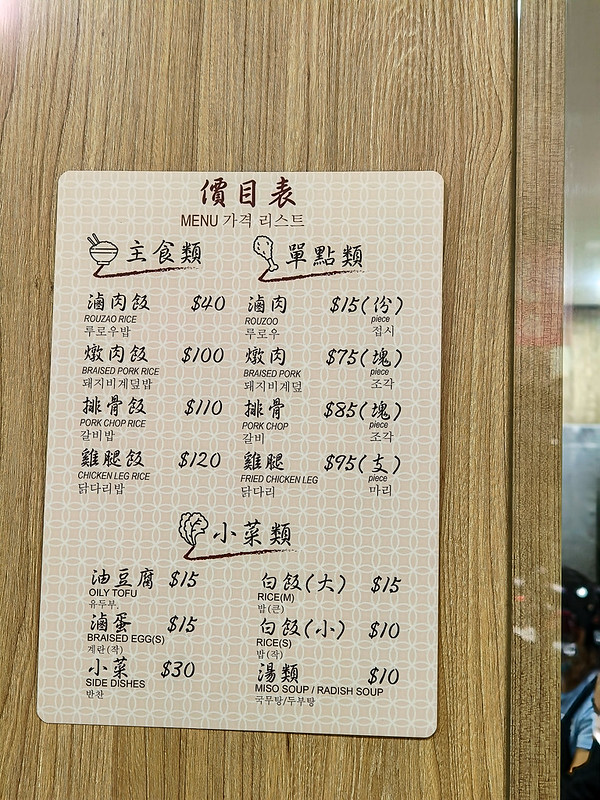 價目表
MENU 가격 리스트
主食類
滷肉飯 $40
ROUZAO RICE
루로우밥
燉肉飯 $100
BRAISED PORK RICE
돼지비계덮밥
排骨飯 $110
PORK CHOP RICE
갈비밥
雞腿飯 $120
CHICKEN LEG RICE
닭다리밥
單點類
滷肉 $15(份)
ROUZOO piece
루로우 접시
燉肉 $75(塊)
BRAISED PORK piece
돼지비계덮 조각
排骨 $85(塊)
PORK CHOP piece
갈비 조각
雞腿 $95(支)
FRIED CHICKEN LEG piece
닭다리 마리
小菜類
油豆腐 $15
OILY TOFU
유두부.
滷蛋 $15
BRAISED EGG(S)
계란(작)
小菜 $30
SIDE DISHES
반찬
白飯(大) $15
RICE(M)
밥(큰)
白飯(小) $10
RICE(S)
밥(작)
湯類 $10
MISO SOUP / RADISH SOUP
국무탕/두부탕